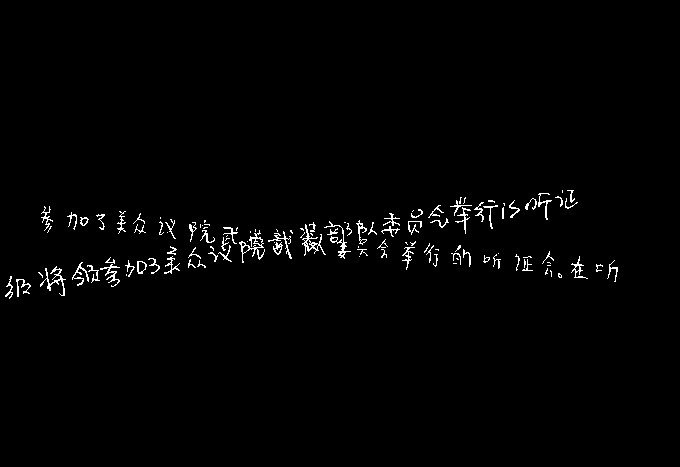 参加了美众议院武装部队委员会举行的听证
级将领参加了美众议院武装部队委员会举行的听证会。在听